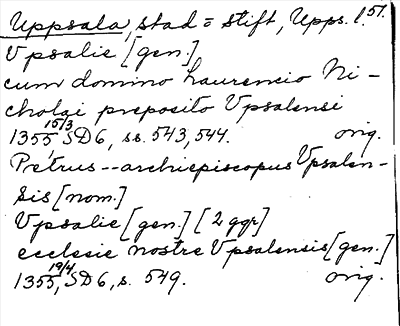 Uppsala, stad = stift, Upps. l. 51.
Vpsalie [gen.]
cum domino Laurencio Ni-
cholai preposito Vpsalensi
1355 15/3, SD6, ss. 543, 544. orig.
Petrus -- archiepiscopus Vpsalen-
sis [nom.]
Vpsalie [gen.] [2 ggr]
ecclesie nostre Vpsalensis [gen.]
1355 19/4, SD6, s. 549. orig.